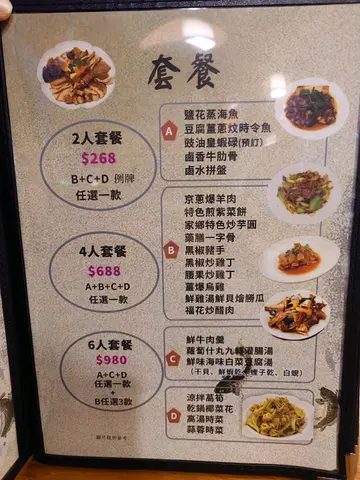 套餐
2人套餐
$268
B+C+D 例牌
任選一款
4人套餐
$688
A+B+C+D
任選一款
6人套餐
$980
A+C+D
任選一款
+
B任選3款
圖片僅供參考
A
鹽花蒸海魚
豆腐薑蔥炆時令魚
豉油皇蝦碌(預訂)
鹵香牛肋骨
鹵水拼盤
B
京蔥爆羊肉
特色煎紫菜餅
家鄉特色炒芋圓
藥膳一字骨
黑椒豬手
黑椒炒雞丁
腰果炒雞丁
薑爆烏雞
鮮雞湯鮮貝燴勝瓜
福花炒醋肉
C
鮮牛肉羹
蘿蔔什丸九轉灌腸湯
鮮味海味白菜豆腐湯
(干貝、鮮蝦乾、蟶子乾、白蜆)
D
涼拌萵筍
乾鍋椰菜花
高湯時菜
蒜蓉時菜